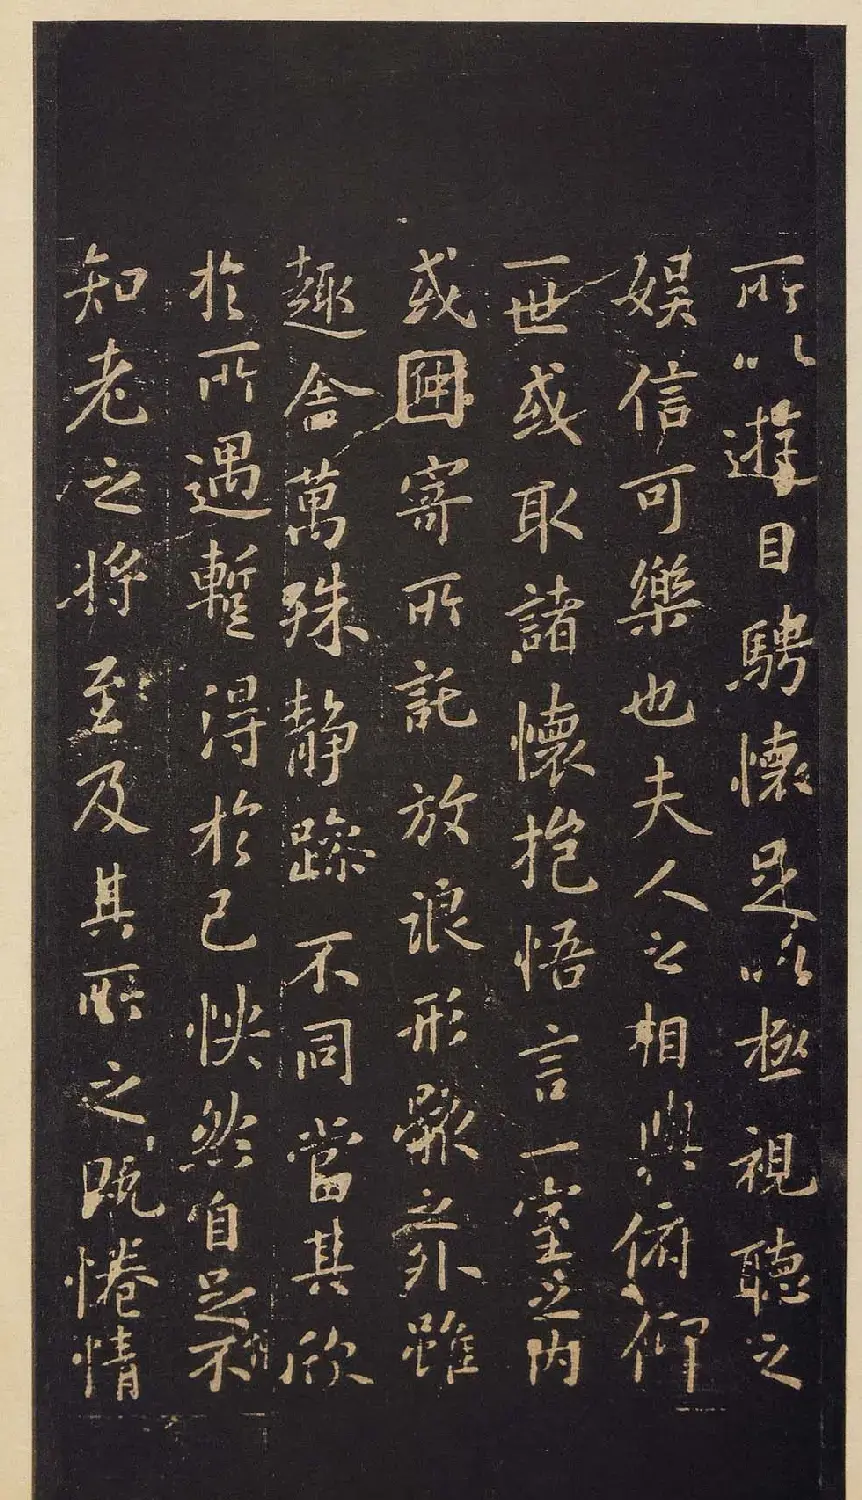 所以遊目騁懷足以極視聽之
娛信可樂也夫人之相與俯仰
一世或取諸懷抱悟言一室之内
或因寄所託放浪形骸之外雖
趣舍萬殊靜躁不同當其欣
於所遇蹔得於己怏然自足不
知老之將至及其所之既惓情